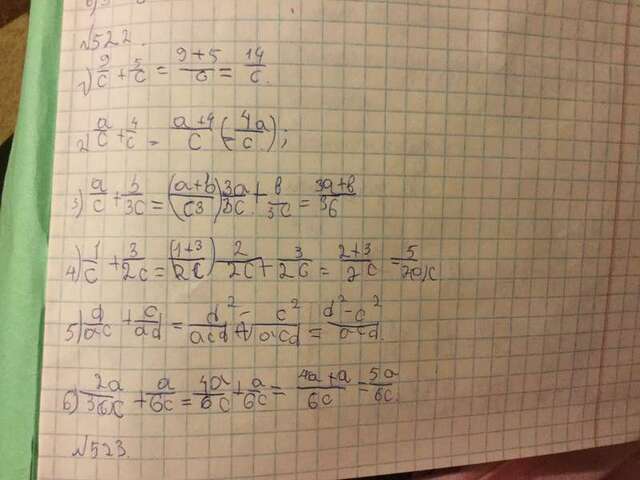 №522.
1) 9/c + 5/c = (9+5)/c = 14/c.
2) a/c + 4/c = (a+4)/c (= 4a/c);
3) a/c + b/3c = ((a+b)/c3) 3a/3c + b/3c = (3a+b)/36
4) 1/c + 3/2c = ((1+3)/2c) 2/2c + 3/2c = (2+3)/2c = 5/2c
5) d/ac + c/ad = d²/acd - c²/acd = (d²-c²)/acd.
6) 2a/3c + a/6c = 4a/6c + a/6c = (4a+a)/6c = 5a/6c.
№523.